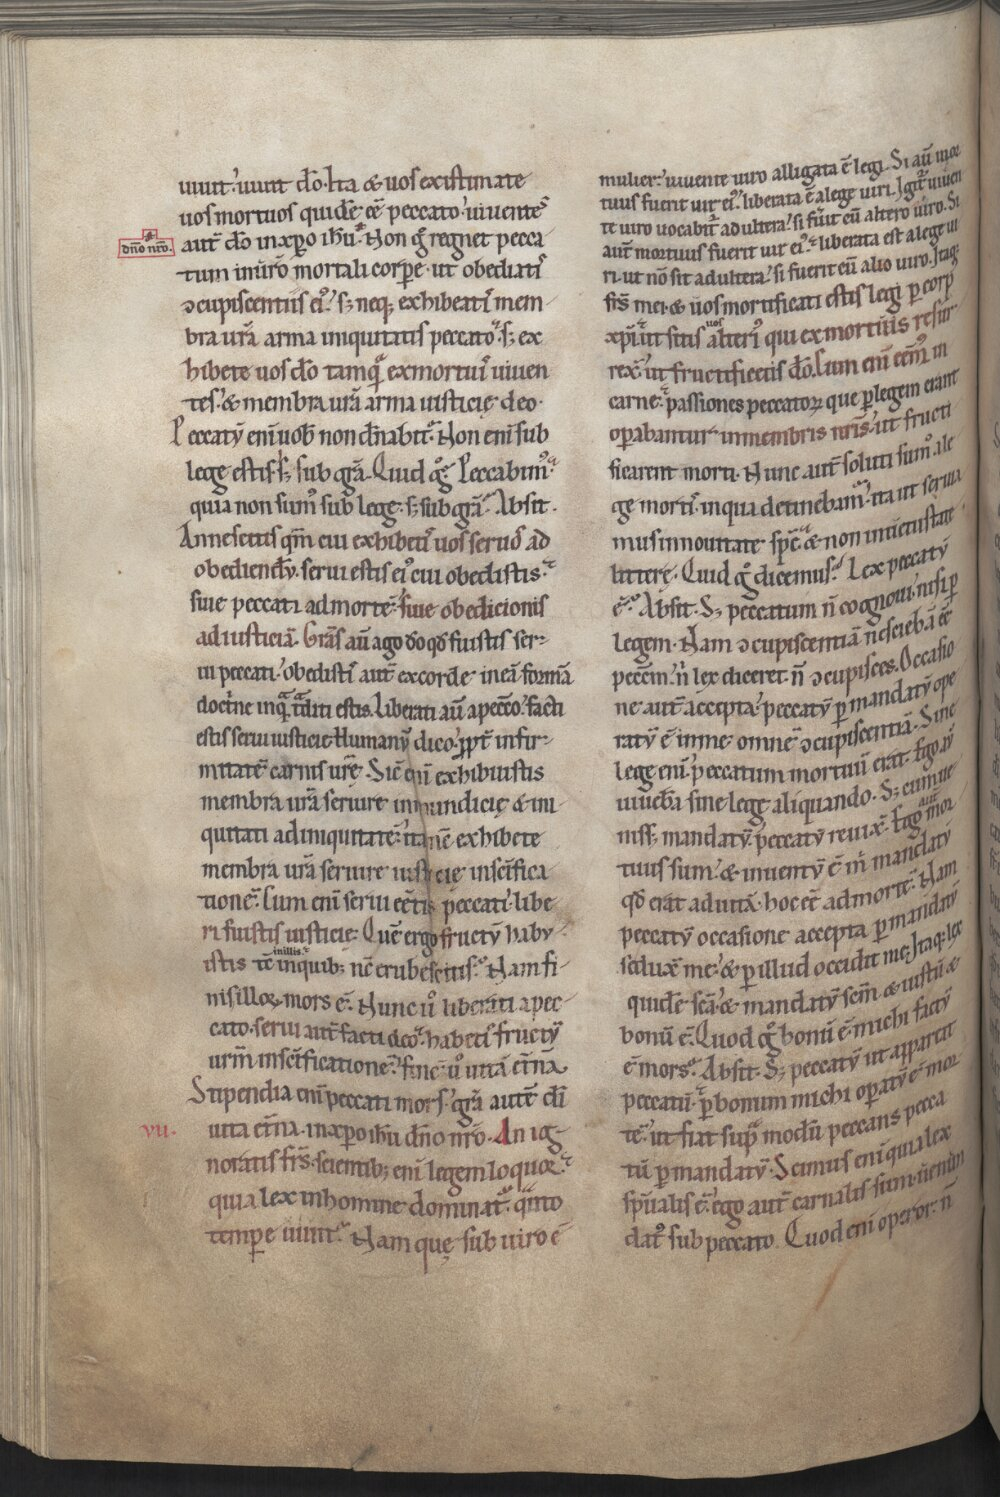 uiuit uiuit d̄o. Ita & uos existimate
uos mortuos quidē ēē peccato uiuentes
aut̄ d̄o in xp̄o ih̄u. Non g̊ regnet pecca
dn̄o nr̄o.
tum in ur̄o mortali corpe ut obediatis
ↄcupiscentiis ei᷒. s; neq; exhibeatis mem
bra ur̄a arma iniquitatis peccato. s; ex
hibete uos d̄o tamqͣ ex mortuis uiuen
tes. & membra ur̄a arma iusticię deo.
Peccatū eni uob̄ non dn̄abit᷑. Non eni sub
lege estis s; sub gr̄a. Quid g̊. Peccabim᷒
quia non sum᷒ sub lege. s; sub gr̄a. Absit.
An nescitis qm̄ cui exhibetis uos seruos ad
obediendū. serui estis ei᷒ cui obedistis.
siue peccati ad mortē. siue obedicionis
ad iusticiā. Gr̄as aū ago d̄o qd̄ fuistis ser
ui peccati. obedistis aut̄ ex corde in eā formā
doctrine in qͣ tͣditi estis. Liberati aū a pecc̄o. facti
estis serui iusticie. Humanū dico. ppt̄ infir
mitatē carnis ur̄ę. Sic̄ eni exhibuistis
membra ur̄a seruire inmundicię & ini
quitati ad iniquitatē. ita nc̄ exhibete
membra ur̄a seruire iusticię in sc̄ifica
tionē. Cum eni serui ēētis peccati. libe
ri fuistis iusticię. Quē ergo fructū habu
istis tc̄ in illis in quib; nc̄ erubescitis. Nam fi
nis illoꝝ mors ē. Nunc u̇ liberati a pec
cato. serui aut̄ facti deo. habetis fructū
ur̄m in sc̄ificationē. finē u̇ uitā et̄nā
Stipendia eni peccati mors. gr̄a aut̄ d̄i
vii.
uita et̄na. in xp̄o ih̄u dn̄o nr̄o. An ig
noratis fr̄s. scientib; eni legem loquor.
quia lex in homine dominat᷑. qͣnto
tempe uiuit. Nam quę sub uiro ē
mulier. uiuente uiro alligata ē legi. Si aū mor
tuus fuerit uir ei᷒. liberata ē a lege uiri. Igit᷑ uiuen
te uiro uocabit᷑ adultera. si fu̇it cū altero uiro. Si
aut̄ mortuus fuerit uir ei᷒. liberata est a lege ui
ri. ut nō sit adultera. si fuerit cū alio uiro. Itaq;
fr̄s mei. & uos mortificati estis legi p corp᷒
xp̄i. ut sitis uos alteri᷒ qui ex mortuis resur
rex̄. ut fructificetis d̄o. Cum eni eēm᷒ in
carne. passiones peccatoꝝ que p legem erant
opabantur in membris nr̄is. ut fructi
ficarent morti. Nunc aut̄ soluti sum᷒ a le
ge mortis. in qua detinebam᷒. ita ut serui
mus in nouitate sp̄c & non in uetustate
litterę. Quid g̊ dicemus. Lex peccatū
ē. Absit. S; peccatum n̄ cognoui. nisi p
legem. Nam ↄcupiscentiā nesciebā ēē
pecc̄m. n̄ lex diceret. n̄ ↄcupisces. Occasio
ne aut̄ accepta. peccatū p mandatū ope
ratū ē in me omnē ↄcupiscentiā. Sine
lege eni. peccatum mortuū erat. Ego aū
uiuebā sine lege aliquando. S; cum ue
niss; mandatū. peccatū reuix̄. Ego aut̄ mor
tuus sum. & inuentū ē m̄ mandatū
qd̄ erat ad uitā. hoc ēē ad mortē. Nam
peccatū occasione accepta p mandatū
sedux̄ me. & p illud occidit me. Itaq; lex
quidē sc̄a. & mandatū sc̄m & iustū &
bonū ē. Quod g̊ bonū ē. michi factū
ē mors. Absit. S; peccatū ut appareat
peccatū. p bonum michi opatū ē mor
tē. ut fiat supͣ modū peccans pecca
tū p mandatū. Scimus eni quia lex
sp̄ualis ē. ego aut̄ carnalis sum. uenūn
dat᷒ sub peccato. Quod eni operor. n̄